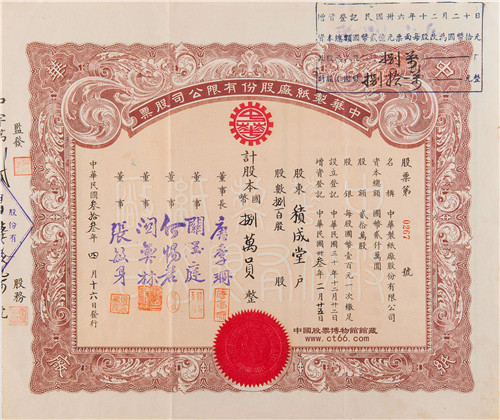 增資登記民國卅六年十二月二十日
資本總額國幣貳億元票面每股改為國幣拾元
捌萬
捌拾萬
整
中華
中華製紙廠股份有限公司股票
股票第0267號
名稱 中華製紙廠股份有限公司
資本總額 國幣貳仟萬圓
股額 貳拾萬股
股銀 每股國幣壹百元一次繳足
設立登記 中華民國三十年十二月廿二日
增資登記 中華民國卅叁年二月廿五日
股東 積成堂 戶
股數 捌百 股
計股本國幣 捌萬員 整
董事長
董事
董事
董事
董事
關玉庭
何暢若
張敏身
中華民國叁拾叁年四月十六日發行
監發
股份有
股務
紙廠
中國股票博物館館藏
www.ct66.com